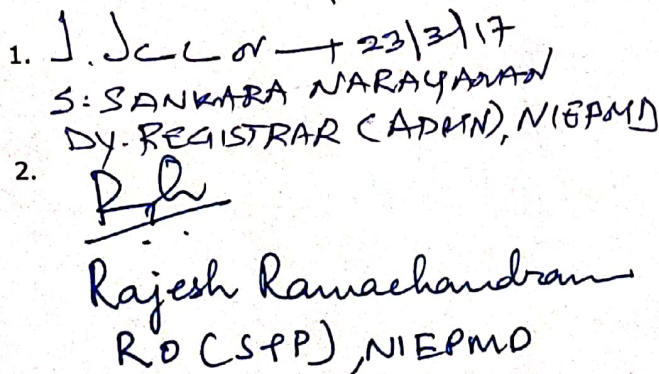 1. 23/3/17
S. SANKARA NARAYANAN
DY. REGISTRAR (ADMN), NIEPMD
2.
Rajesh Ramachandran
RO (S&P), NIEPMD